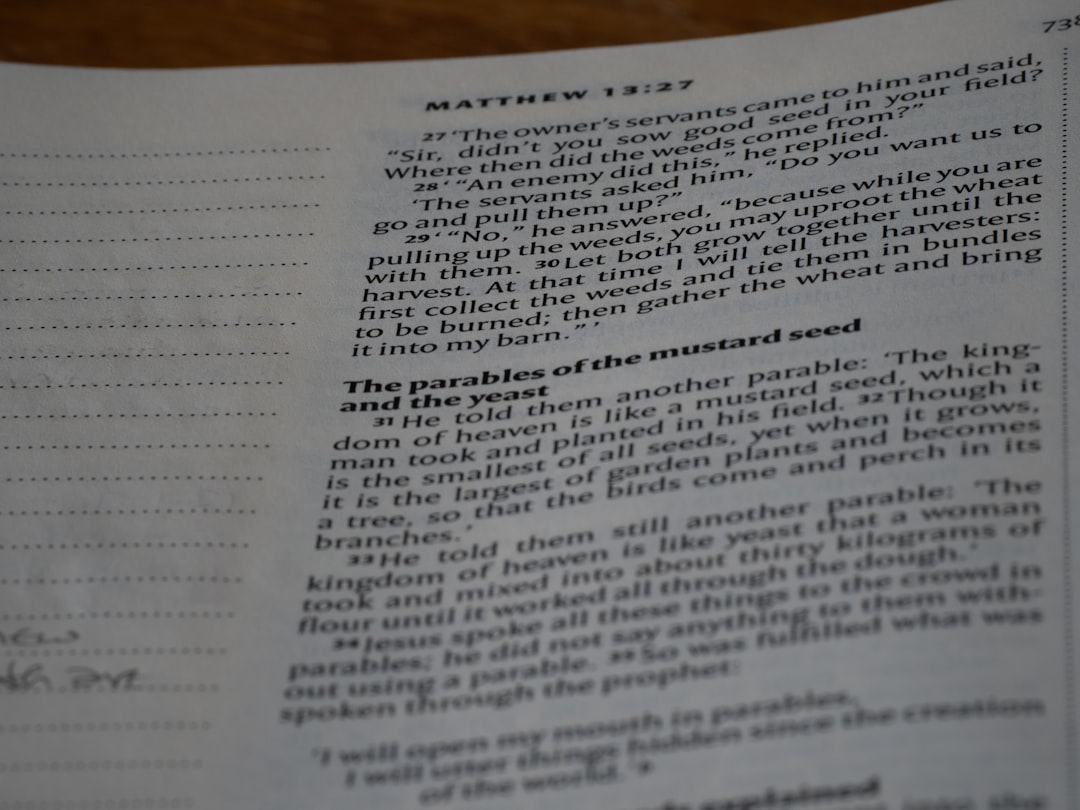 738
MATTHEW 13:27
27 ‘The owner’s servants came to him and said,
“Sir, didn’t you sow good seed in your field?
Where then did the weeds come from?”
28 ‘ “An enemy did this,” he replied.
‘The servants asked him, “Do you want us to
go and pull them up?”
29 ‘ “No,” he answered, “because while you are
pulling up the weeds, you may uproot the wheat
with them. 30 Let both grow together until the
harvest. At that time I will tell the harvesters:
first collect the weeds and tie them in bundles
to be burned; then gather the wheat and bring
it into my barn.” ’
The parables of the mustard seed
and the yeast
31 He told them another parable: ‘The king-
dom of heaven is like a mustard seed, which a
man took and planted in his field. 32 Though it
is the smallest of all seeds, yet when it grows,
it is the largest of garden plants and becomes
a tree, so that the birds come and perch in its
branches.’
33 He told them still another parable: ‘The
kingdom of heaven is like yeast that a woman
took and mixed into about thirty kilograms of
flour until it worked all through the dough.’
34 Jesus spoke all these things to the crowd in
parables; he did not say anything to them with-
out using a parable. 35 So was fulfilled what was
spoken through the prophet:
‘I will open my mouth in parables,
I will utter things hidden since the creation
of the world.’
explained